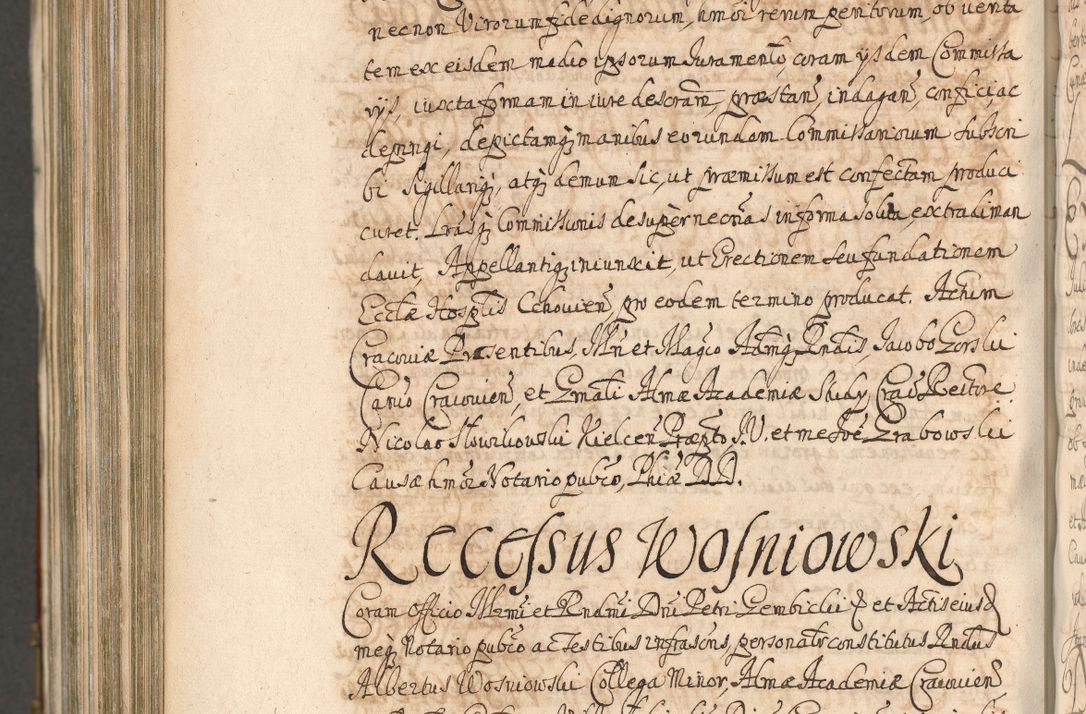 necnon Virorum fidedignorum, hmoi rerum peritorum, ob venta
tem ex eisdem medio ipsorum Juramento, coram ijsdem Commissa
rijs, iuxta formam in iure descram, præstan, indagan, confici, ac
depingi, depictamq manibus eorundem Commissariorum subscri
bi sigillariq, atq demum sic, ut præmissum est confectam produci
curet. Lrasq Commissionis desuper necrias in forma solita, extradi man
davit, Appellantiq iniunxit, ut Erectionem seu fundationem
Ecclæ Hosplis Cchovien, pro eodem termino producat. Actum
Cracoviæ Præsentibus, Mri et Magco Admq Rndis, Jacobo Gorskii
Canco Cracovien, et Gnali Almæ Academiæ Study, Crac Rectore.
Nicolao Slowikowski Kielcen Præpto J.V. et me Grabowskii
Causæ hmoi Notario pubco, Phiæ DD.
Recessus Wosniowski
Coram Officio Illrmi et Rndmi Dni Petri Gembickii et Actis eius
meq Notario pubco ac Testibus infrascris, personalr constitutus Rndus
Albertus Wosniowski Collega Minor, Almæ Academiæ Cracovien